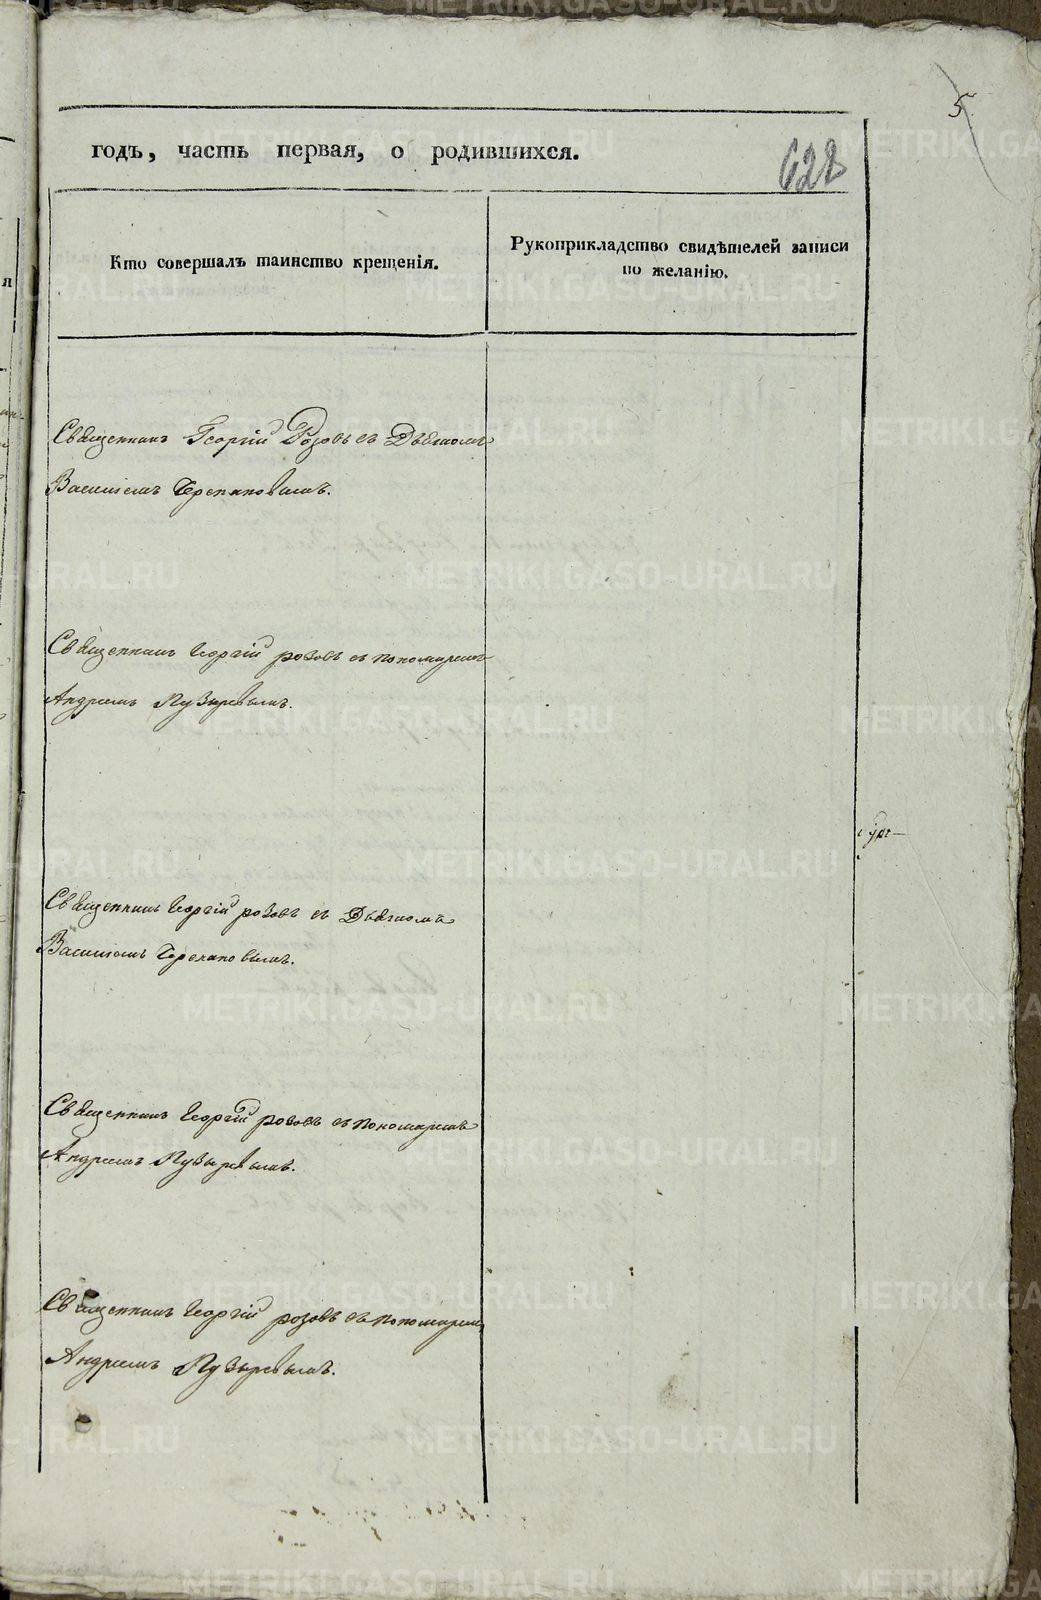 5
годъ, часть первая, о родившихся.
622
Кто совершалъ таинство крещенія.
Рукоприкладство свидѣтелей записи
по желанію.
Священникъ Георгій Розовъ съ Дьякомъ
Василіемъ Черепановымъ.
Священникъ Георгій розовъ съ пономаремъ
Андреемъ Пузыревымъ.
Священникъ Георгій розовъ съ Дьякомъ
Василіемъ Черепановымъ.
Священникъ Георгій розовъ съ пономаремъ
Андреемъ Пузыревымъ.
Священникъ Георгій розовъ съ пономаремъ
Андреемъ Пузыревымъ.
METRIKI.GASO-URAL.RU